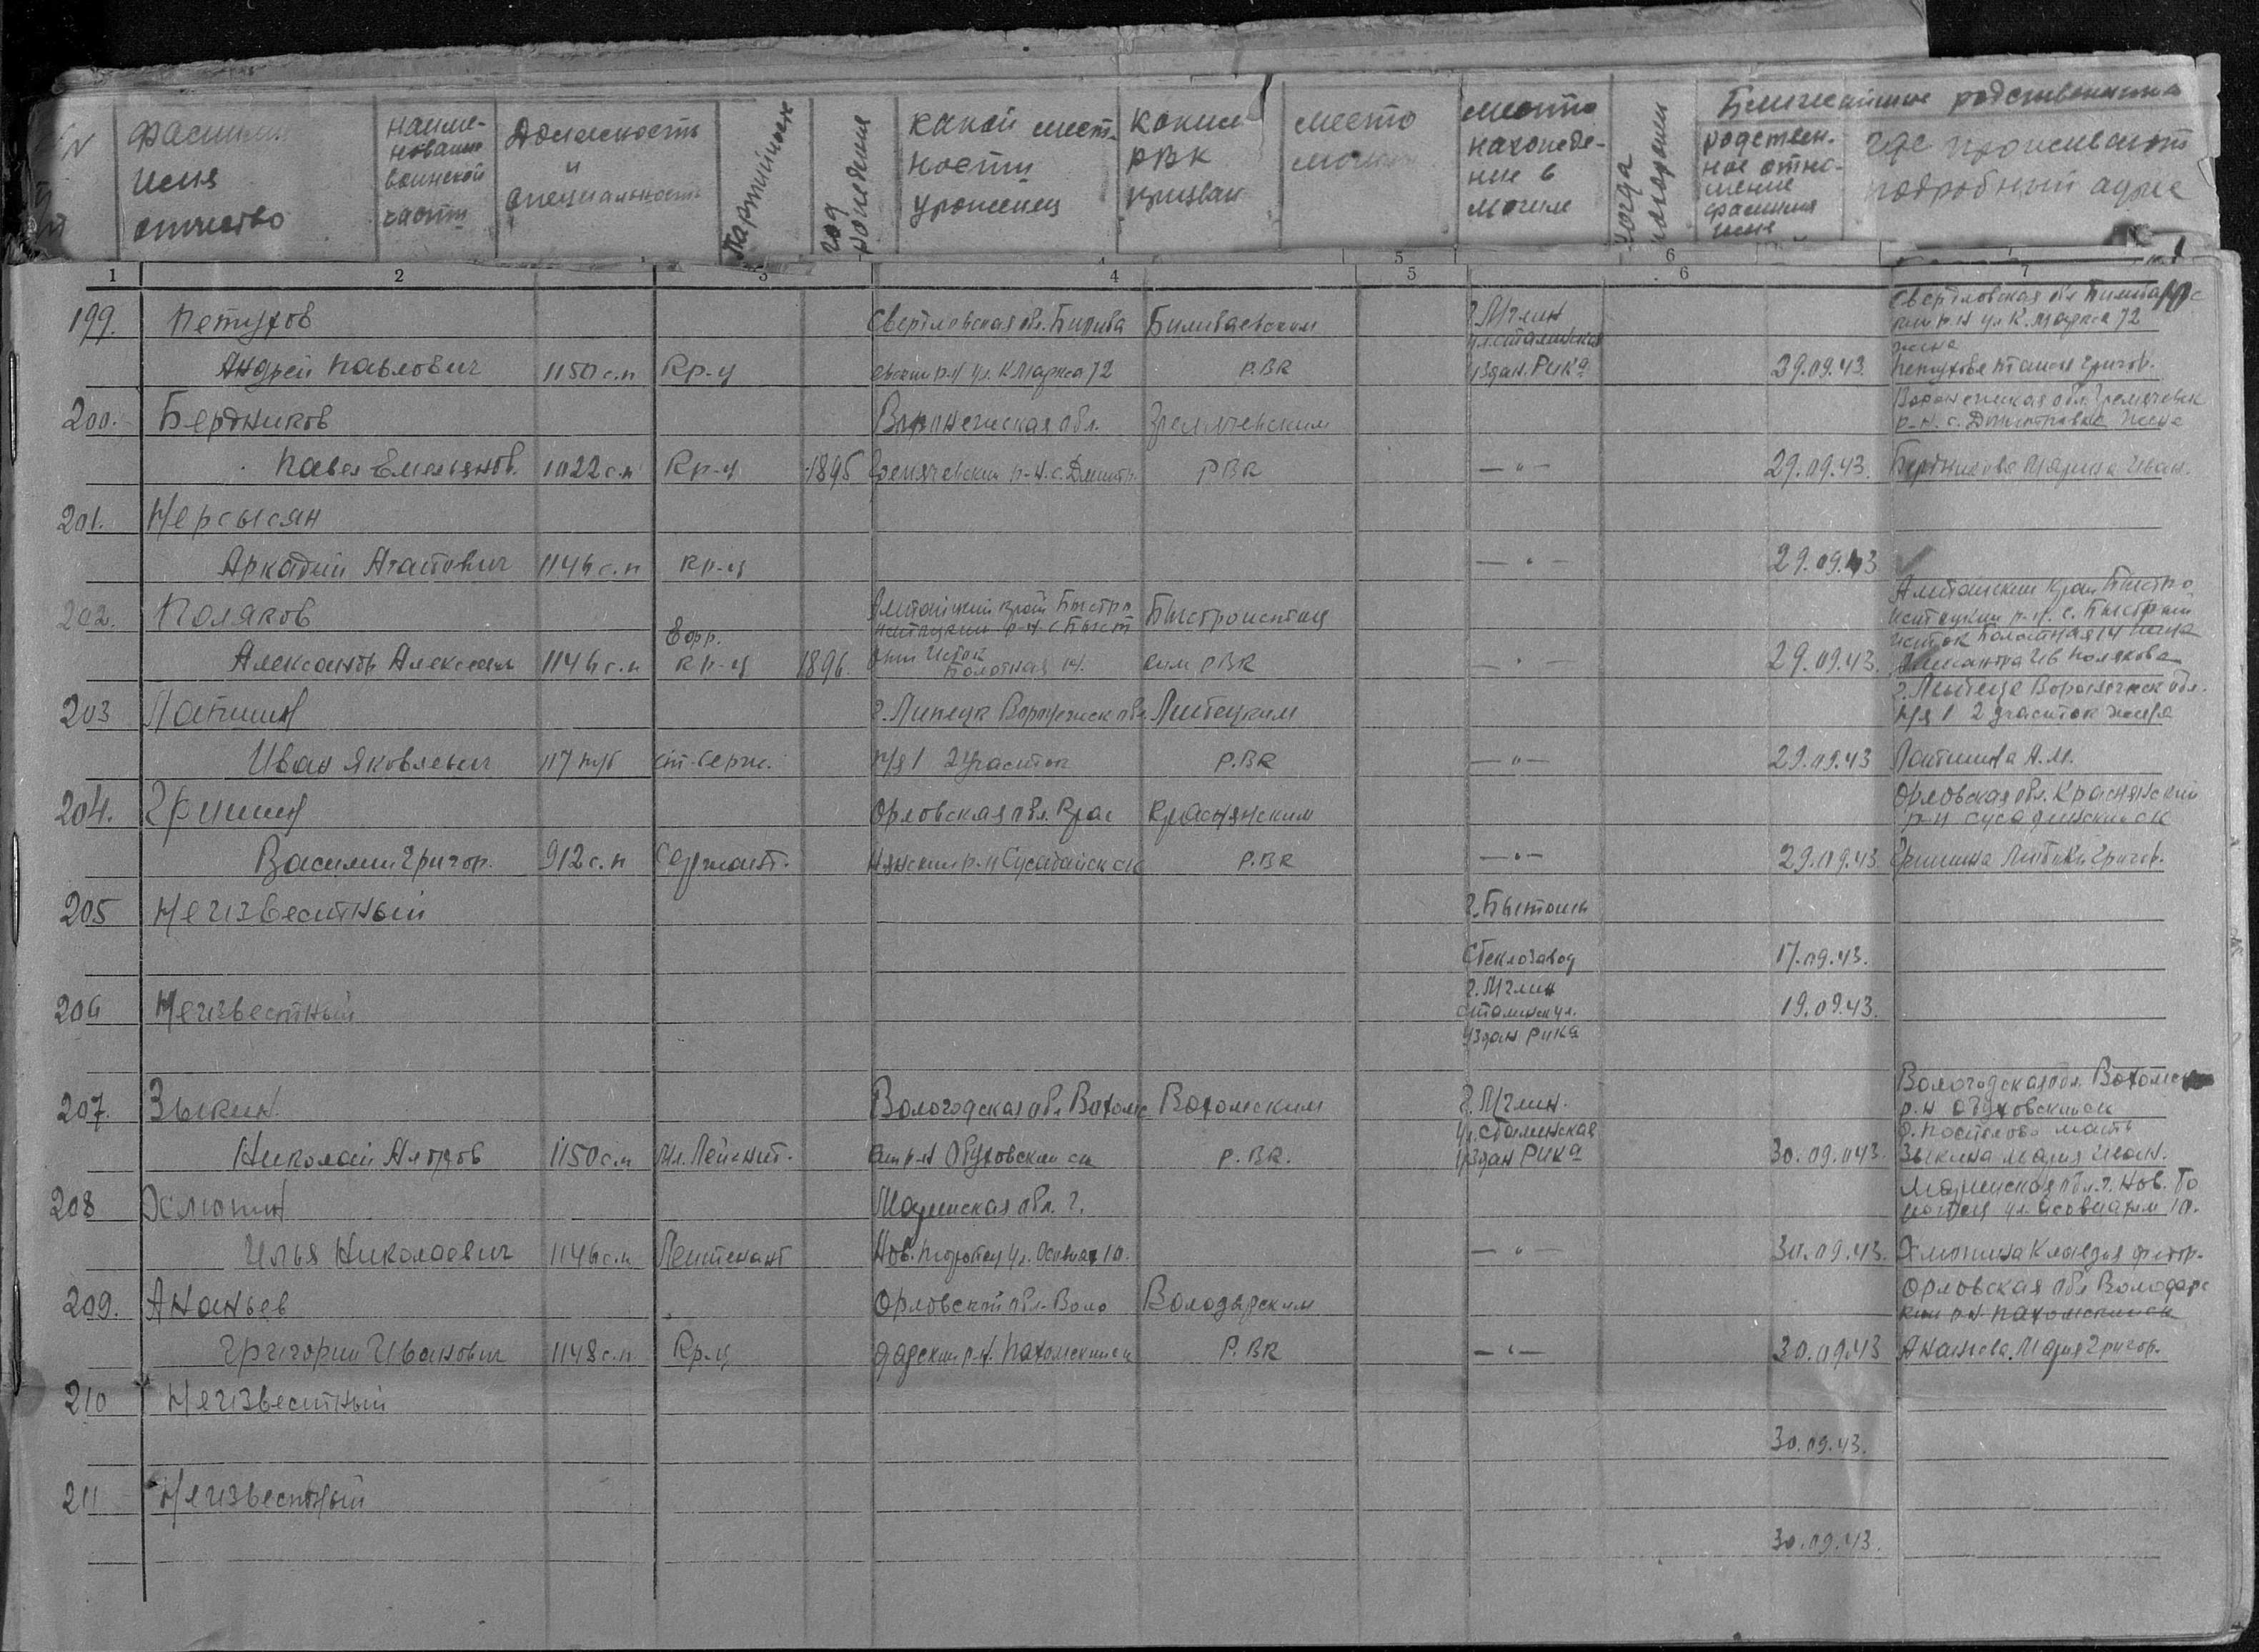 Фамилия
имя
отчество
наиме-
нование
воинской
части
Должность
и
специальность
Партийность
год
рождения
какой мест-
ности
уроженец
каким
РВК
призван
место
могилы
место
нахожде-
ние в
могиле
когда
похоронен
Ближайшие родственники
родствен-
ное отно-
шение
фамилия
имя
где проживают
подробный адрес
1 2 3 4 5 6 7
199. Петухов
Андрей Павлович 1150 с.п Кр-ц
Свердловская обл. Билимба
евский р-н ул. К Маркса 72
Билимбаевским
РВК
г. Мглин
ул. Сталинская
здан. Рика
29.09.43
ский р-н ул К. Маркса 72
жена
Петухова Григор.
200. Бердников
Павел Емельянов. 1022 с.п Кр-ц 1895
Воронежская обл.
Гремяченский р-н. с. Дмитр.
Гремяченским
РВК
— " —
29.09.43.
Воронежская обл. Гремяченск
р-н. с. Дмитровка жена
Бердникова Марина Иван.
201. Нерсысян
Аркадий Агапович 1146 с.п кр-ц
— " —
29.09.43
202. Поляков
Александр Алексеев 1146 с.п Ефр. кр-ц 1896.
Алтайский край Быстро
истоцкий р-н с Быст
рый Исток
Болотная 14.
Быстроистоц
ким РВК
— " —
29.09.43.
Алтайский край Быстро
истоцкий р-н. с. Быстрый
исток Болотная 14
Полякова
203 Латишин
Иван Яковлевич ст-серж.
г. Липецк Воронежск обл.
п/я 1 2 участок
Липецким
Р.ВК
— " —
29.09.43
г. Липецк Воронежск обл.
п/я 1 2 участок жена
Латишина А.М.
204. Гришин
Василий Григор. 912 с.п Сержант.
Орловская обл. Крас
нянский р-н
Краснянским
Р.ВК
— " —
29.09.43.
Орловская обл. Краснянский
р-н
Гришина Григор.
205 Неизвестный
г. Бытошь
Стеклозавод
17.09.43.
206 Неизвестный
г. Мглин
Сталинск ул.
здан Рика
19.09.43.
207. Зыкин.
Николай 1150 с.п Мл. Лейтент.
Вологодская обл Вохомс
кий р-н Обуховский с/с
Вохомским
Р.ВК.
г. Мглин.
ул. Сталинская
здан Рика
30.09.043.
Вологодская обл. Вохомск
р.н Обуховский с/с
мать
Зыкина Мария Иван.
208 Хлюпин
Илья Николаевич 1146 с.п Лейтенант
обл. г.
10.
— " —
30.09.43.
обл. г. Нов.
10.
Хлюпина Клавдия Федор.
209. Ананьев
Григорий Иванович 1148 с.п Кр-ц
Орловской обл. Воло
дарский р.н. Пахомский с/с
Володарским
Р.ВК
— " —
30.09.43
Орловская обл Володарс
кий р.н. Пахомский с/с
Ананьева Мария Григор.
210 Неизвестный
30.09.43.
211 Неизвестный
30.09.43.